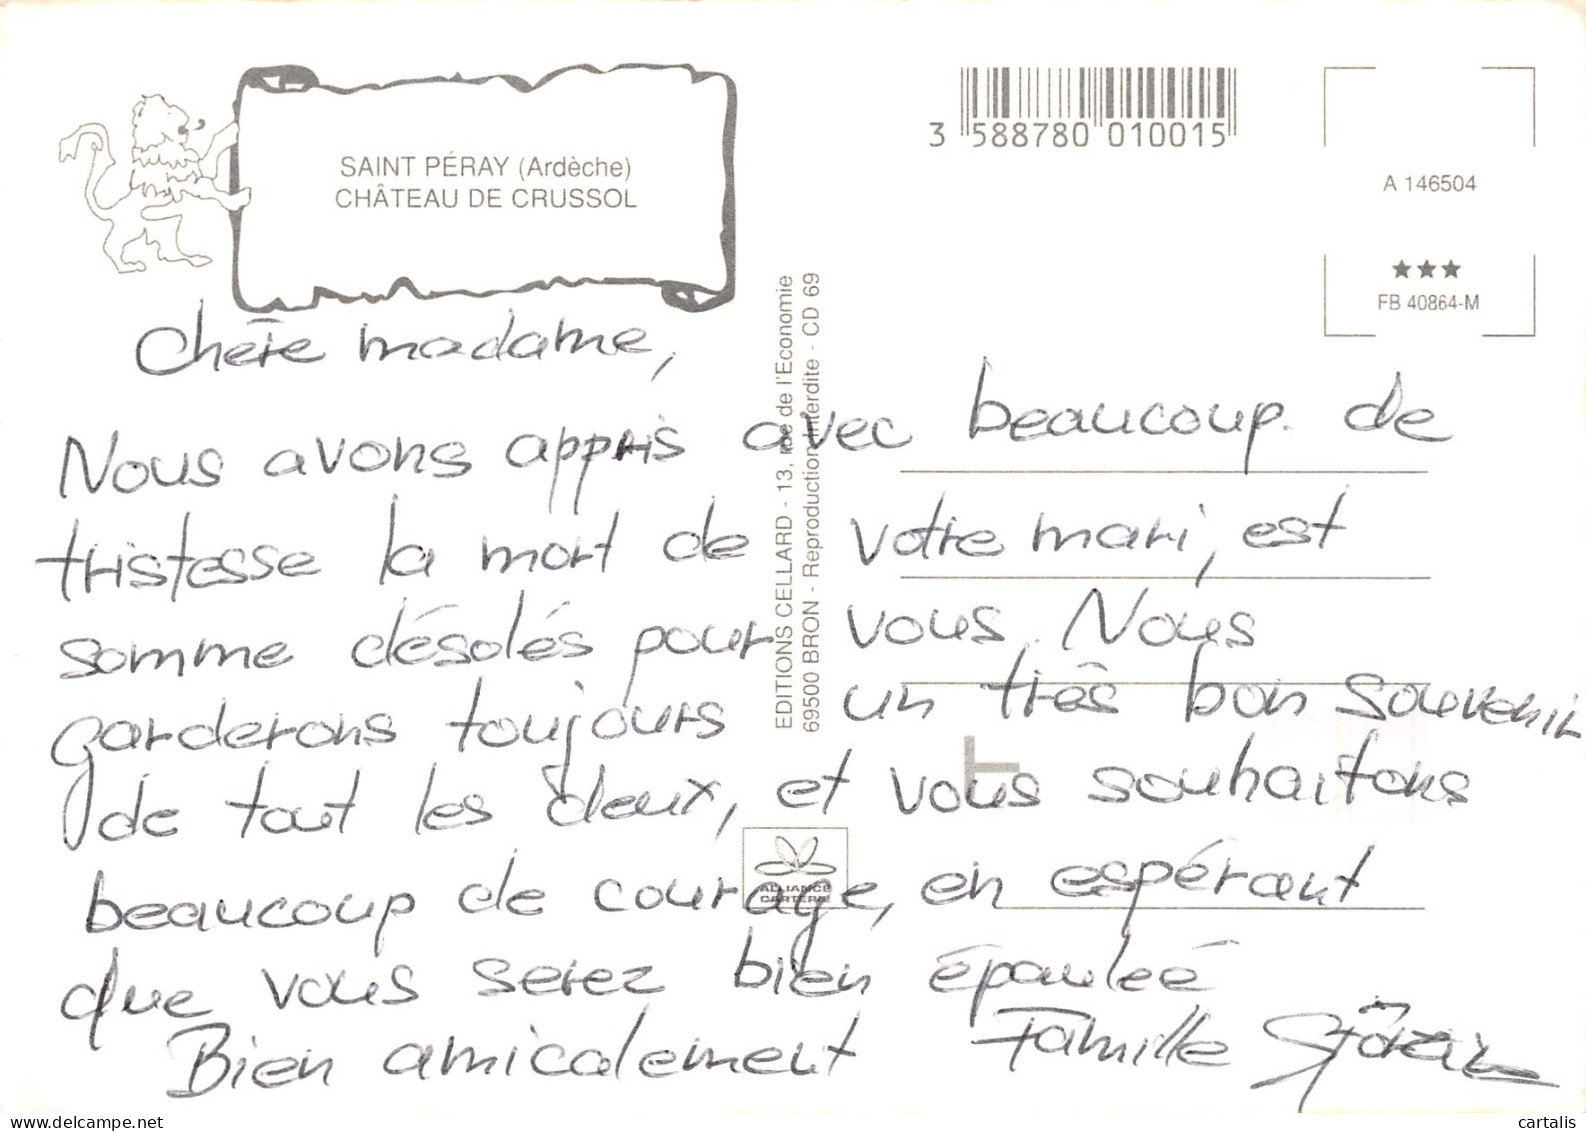 SAINT PÉRAY (Ardèche)
CHÂTEAU DE CRUSSOL
3 588780 010015
A 146504
★★★
FB 40864-M
EDITIONS CELLARD - 13, rue de l'Economie
69500 BRON - Reproduction interdite - CD 69
chère madame,
Nous avons appris avec beaucoup de
tristesse la mort de votre mari, est
somme désolés pour vous. Nous
garderons toujours un très bon souvenir
de tout les deux, et vous souhaitons
beaucoup de courage, en espérant
que vous serez bien épauleé
Bien amicalement Famille
ALLIANCE
CARTERIE
cartalis